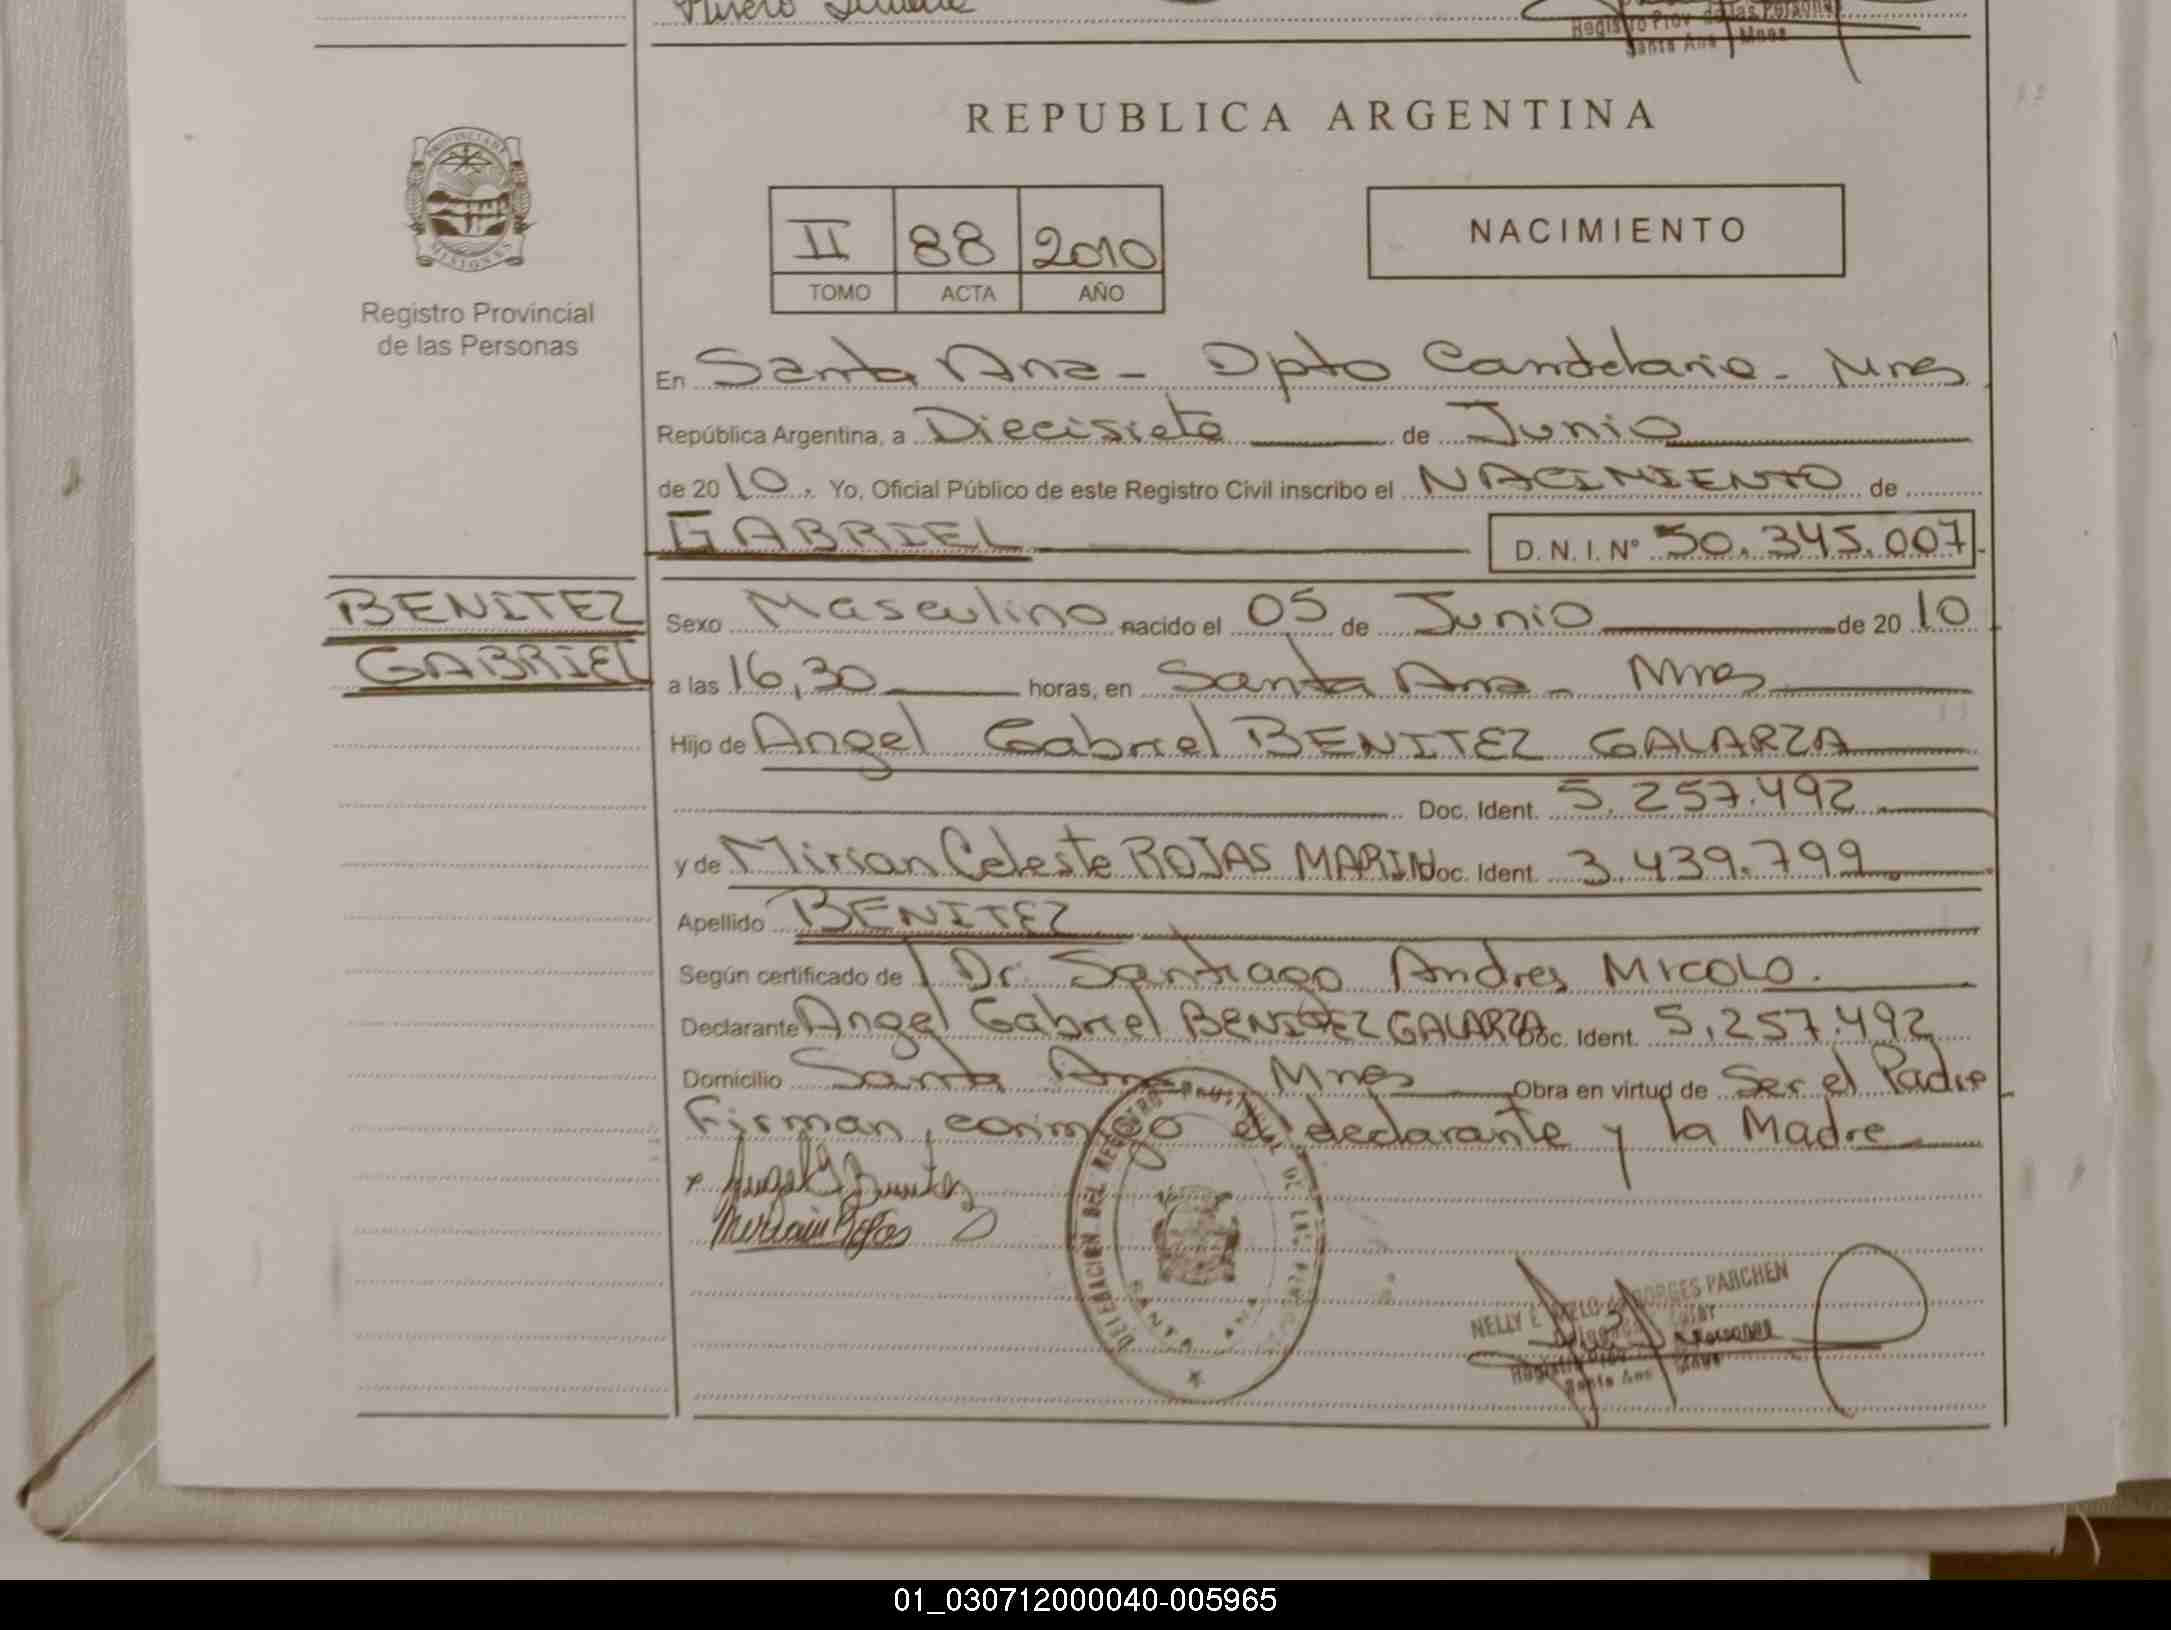 Registro Prov. de las Personas
Santa Ana Mnes
PROVINCIA DE
MISIONES
Registro Provincial
de las Personas
REPUBLICA ARGENTINA
II 88 2010
TOMO ACTA AÑO
NACIMIENTO
En Santa Ana - Dpto Candelaria - Mnes
República Argentina, a Diecisiete de Junio
de 2010. Yo, Oficial Público de este Registro Civil inscribo el NACIMIENTO de
GABRIEL D. N. I. Nº 50.345.007
BENITEZ
GABRIEL
Sexo Masculino nacido el 05 de Junio de 2010
a las 16,30 horas, en Santa Ana - Mnes
Hijo de Angel Gabriel BENITEZ GALARZA
Doc. Ident. 5.257.492
y de Mirian Celeste ROJAS MARIN Doc. Ident. 3.439.799
Apellido BENITEZ
Según certificado de Dr. Santiago Andres MICOLO.
Declarante Angel Gabriel BENITEZ GALARZA Doc. Ident. 5.257.492
Domicilio Santa Ana Mnes Obra en virtud de Ser el Padre
Firman conmigo el declarante y la Madre
x Angel G Benitez
Miriam Rojas
DELEGACION DEL REGISTRO PROVINCIAL DE LAS PERSONAS
SANTA ANA
NELLY E. de BORGES PARCHEN
Registro Prov. Personas
Santa Ana Mnes
01_030712000040-005965